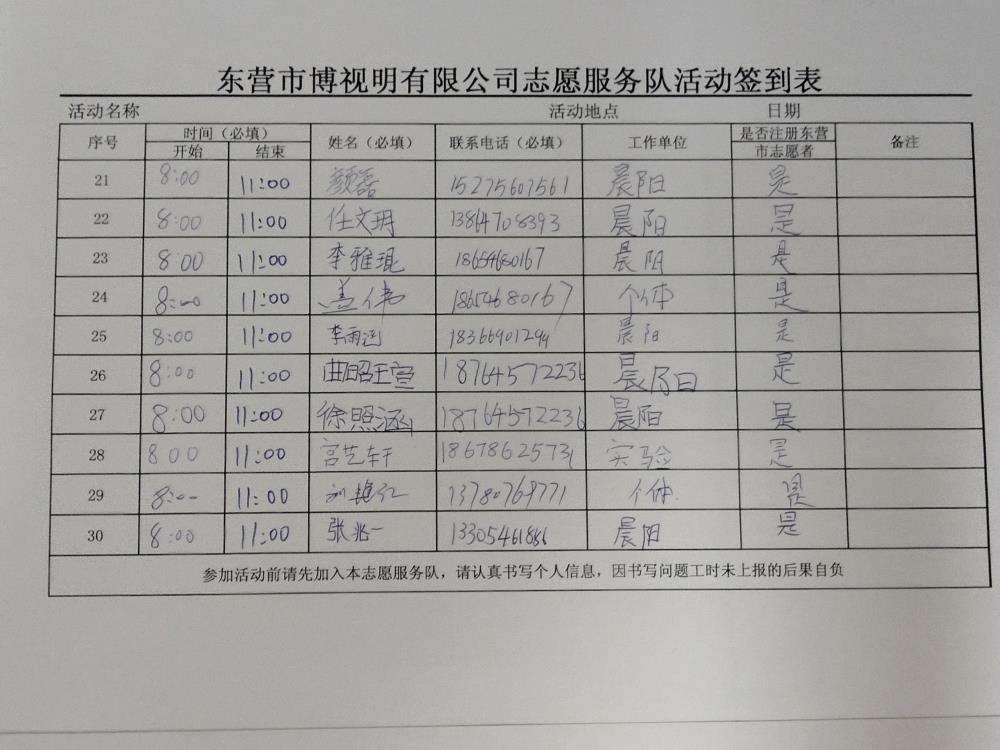 东营市博视明有限公司志愿服务队活动签到表
活动名称 活动地点 日期
序号 时间（必填） 姓名（必填） 联系电话（必填） 工作单位 是否注册东营市志愿者 备注
开始 结束
21 8:00 11:00 颜磊 15275607561 晨阳 是
22 8:00 11:00 任文玥 13864708393 晨阳 是
23 8:00 11:00 李雅琨 18654680167 晨阳 是
24 8:00 11:00 盖伟 18654680167 个体 是
25 8:00 11:00 李雨涵 18366901294 晨阳 是
26 8:00 11:00 曲昭宣 18764572236 晨阳 是
27 8:00 11:00 徐照涵 18764572236 晨阳 是
28 8 00 11:00 宫艺轩 18678625731 实验 是
29 8:00 11:00 刘艳红 13780769771 个体 是
30 8:00 11:00 张兆一 13305461886 晨阳 是
参加活动前请先加入本志愿服务队，请认真书写个人信息，因书写问题工时未上报的后果自负